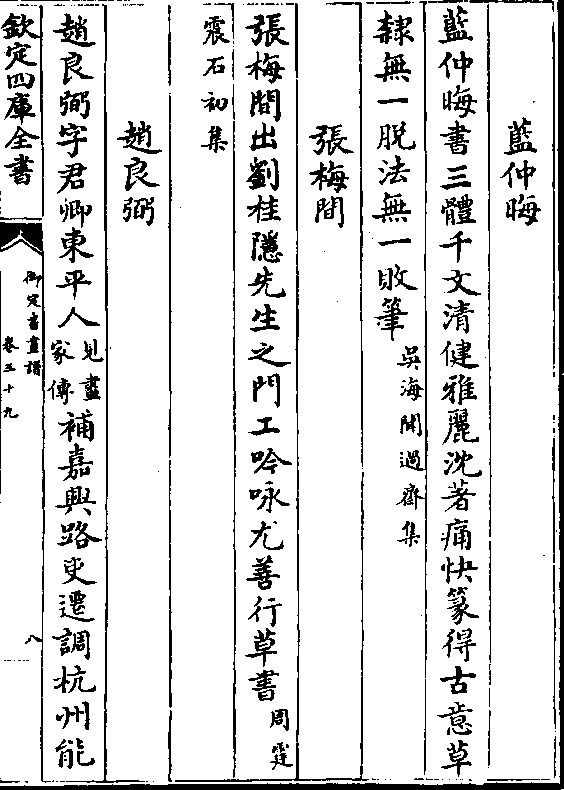 藍仲晦
藍仲晦書三體千文清健雅麗沈著痛快篆得古意草
隸無一脫法無一敗筆吳海聞過齋集
張梅間
張梅間出劉桂隱先生之門工吟咏尤善行草書周霆
震石初集
趙良弼
趙良弼字君卿東平人見畫家傳補嘉興路吏遷調杭州能
欽定四庫全書
御定書畫譜
卷三十九
八